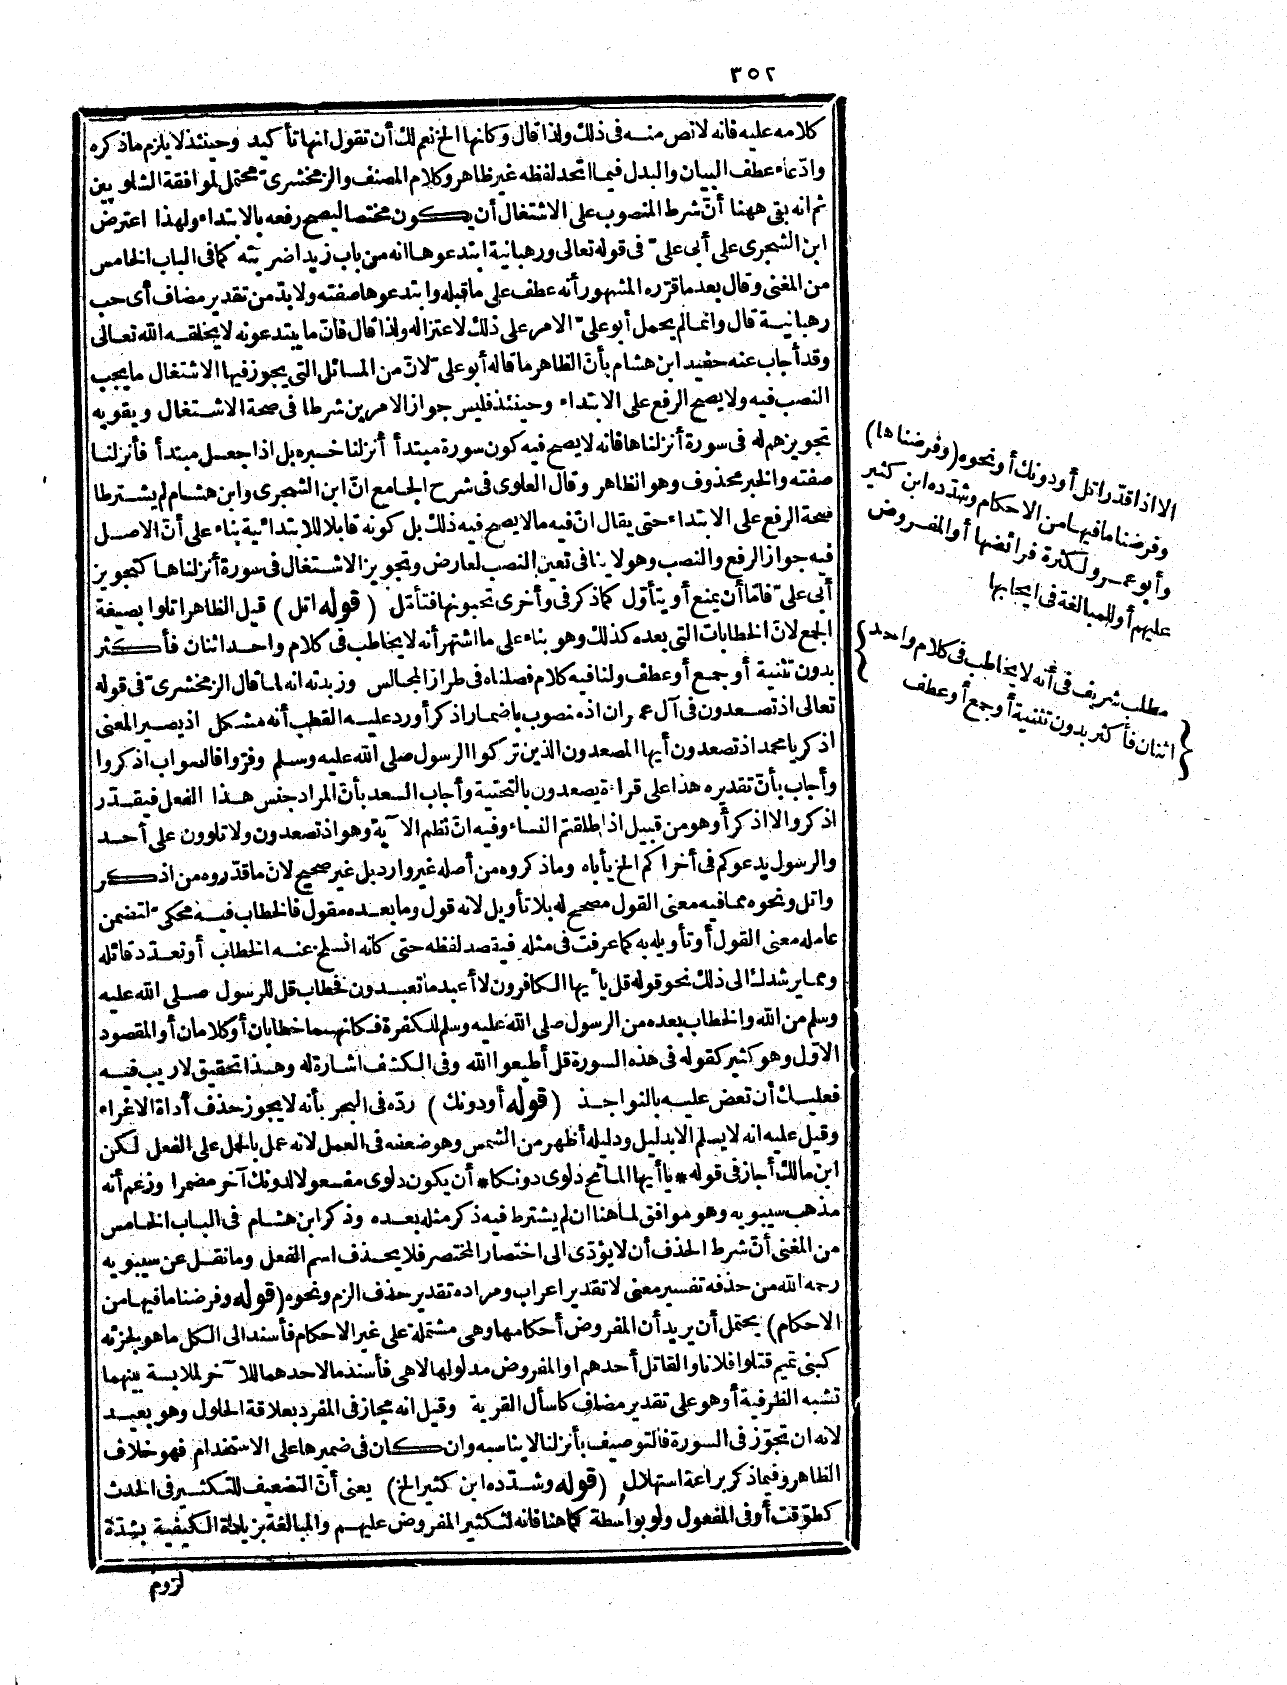 ٣٥٢
كلامه عليه فانه لا نص منه فى ذلك ولذا قال وكانها الخ نعم لك أن تقول انها تأكيد وحينئذ لا يلزم ما ذكره
وادّعاء عطف البيان والبدل فيما اتحد لفظه غير ظاهر وكلام المصنف والزمخشرى محتمل لموافقة الشلوبين
ثم انه بقى ههنا أنّ شرط المنصوب على الاشتغال أن يكون مختصا ليصح رفعه بالابتداء ولهذا اعترض
ابن الشجرى على أبى علىّ فى قوله تعالى ورهبانية ابتدعوها انه من باب زيدا ضربته كما فى الباب الخامس
من المغنى وقال بعد ما قرّره المشهور أنه عطف على ما قبله وابتدعوها صفته ولا بدّ من تقدير مضاف أى حب
رهبانية قال وانما لم يحمل أبو علىّ الامر على ذلك لاعتزاله ولذا قال فانّ ما يبتدعونه لا يخلقه الله تعالى
وقد أجاب عنه حفيد ابن هشام بأنّ الظاهر ما قاله أبو علىّ لانّ من المسائل التى يجوز فيها الاشتغال ما يجب
النصب فيه ولا يصح الرفع على الابتداء وحينئذ فليس جواز الامرين شرطا فى صحة الاشتغال ويقويه
تجويزهم له فى سورة أنزلناها فانه لا يصح فيه كون سورة مبتدأ أنزلنا خبره بل اذا جعل مبتدأ فأنزلنا
صفته والخبر محذوف وهو الظاهر وقال العلوى فى شرح الجامع انّ ابن الشجرى وابن هشام لم يشترطا
صحة الرفع على الابتداء حتى يقال انّ فيه ما لا يصح فيه ذلك بل كونه قابلا للابتدائية بناء على أنّ الاصل
فيه جواز الرفع والنصب وهو لا ينافى تعين النصب لعارض وتجويز الاشتغال فى سورة أنزلناها كتجويز
أبى علىّ فامّا أن يمنع أو يتأوّل كما ذكر فى وأخرى تحبونها فتأمّل (قوله اتل) قيل الظاهر اتلوا بصيغة
الجمع لانّ الخطابات التى بعده كذلك وهو بناء على ما اشتهر أنه لا يخاطب فى كلام واحد اثنان فأكثر
بدون تثنية أو جمع أو عطف ولنا فيه كلام فصلناه فى طراز المجالس وزبدته انه لما قال الزمخشرى فى قوله
تعالى اذ تصعدون فى آل عمران اذ منصوب باضمار اذكر أورد عليه القطب أنه مشكل اذ يصير المعنى
اذكر يا محمد اذ تصعدون أيها المصعدون الذين تركوا الرسول صلى الله عليه وسلم وفرّوا فالصواب اذكروا
وأجاب بأنّ تقديره هذا على قراءة يصعدون بالتحتية وأجاب السعد بأنّ المراد جنس هذا الفعل فيقدّر
اذكروا لا اذكر أو هو من قبيل اذا طلقتم النساء وفيه انّ نظم الآية وهو اذ تصعدون ولا تلوون على أحد
والرسول يدعوكم فى أخراكم الخ يأباه وما ذكروه من أصله غير وارد بل غير صحيح لانّ ما قدّروه من اذكر
واتل ونحوه مما فيه معنى القول مصحح له بلا تأويل لانه قول وما بعده مقول فالخطاب فيه محكىّ لتضمن
عامله معنى القول أو تأويله به كما عرفت فى مثله فيقصد لفظه حتى كأنه انسلخ عنه الخطاب أو تعدّد قائله
ومما يرشدك الى ذلك نحو قوله قل يأيها الكافرون لا أعبد ما تعبدون فخطاب قل للرسول صلى الله عليه
وسلم من الله والخطاب بعده من الرسول صلى الله عليه وسلم للكفرة فكانهما خطابان أو كلامان أو المقصود
الاوّل وهو كثير كقوله فى هذه السورة قل أطيعوا الله وفى الكشف اشارة له وهذا تحقيق لا ريب فيه
فعليك أن تعض عليه بالنواجذ (قوله أو دونك) ردّه فى البحر بأنه لا يجوز حذف أداة الاغراء
وقيل عليه انه لا يسلم الا بدليل ودليله أظهر من الشمس وهو ضعفه فى العمل لانه عمل بالحمل على الفعل لكن
ابن مالك أجاز فى قوله * يا أيها المائح دلوى دونكا * أن يكون دلوى مفعولا لدونك آخر مضمرا وزعم أنه
مذهب سيبويه وهو موافق لما هنا ان لم يشترط فيه ذكر مثله بعده وذكر ابن هشام فى الباب الخامس
من المغنى أنّ شرط الحذف أن لا يؤدّى الى اختصار المختصر فلا يحذف اسم الفعل وما نقل عن سيبويه
رحمه الله من حذفه تفسير معنى لا تقدير اعراب ومراده تقدير حذف الزم ونحوه (قوله وفرضنا ما فيها من
الاحكام) يحتمل أن يريد أن المفروض أحكامها وهى مشتملة على غير الاحكام فأسند الى الكل ما هو لجزئه
كبنى تميم قتلوا فلانا والقاتل أحدهم او المفروض مدلولها لا هى فأسند ما لاحدهما للآخر لملابسة بينهما
تشبه الظرفية أو هو على تقدير مضاف كاسأل القرية وقيل انه مجاز فى المفرد بعلاقة الحلول وهو بعيد
لانه ان تجوّز فى السورة فالتوصيف بأنزلنا لا يناسبه وان كان فى ضميرها على الاستخدام فهو خلاف
الظاهر وفيما ذكر براعة استهلال (قوله وشدّده ابن كثير الخ) يعنى أنّ التضعيف للتكثير فى الحدث
كطوّقت أو فى المفعول ولو بواسطة كما هنا فانه لتكثير المفروض عليهم والمبالغة بزيادة الكيفية بشدّة
لزوم
الا اذا قدّر اتل أو دونك أو نحوه (وفرضناها)
وفرضنا ما فيها من الاحكام وشدّده ابن كثير
وأبو عمرو لكثرة فرائضها أو المفروض
عليهم أو للمبالغة فى ايجابها
مطلب شريف فى أنه لا يخاطب فى كلام واحد
اثنان فأكثر بدون تثنية أو جمع أو عطف